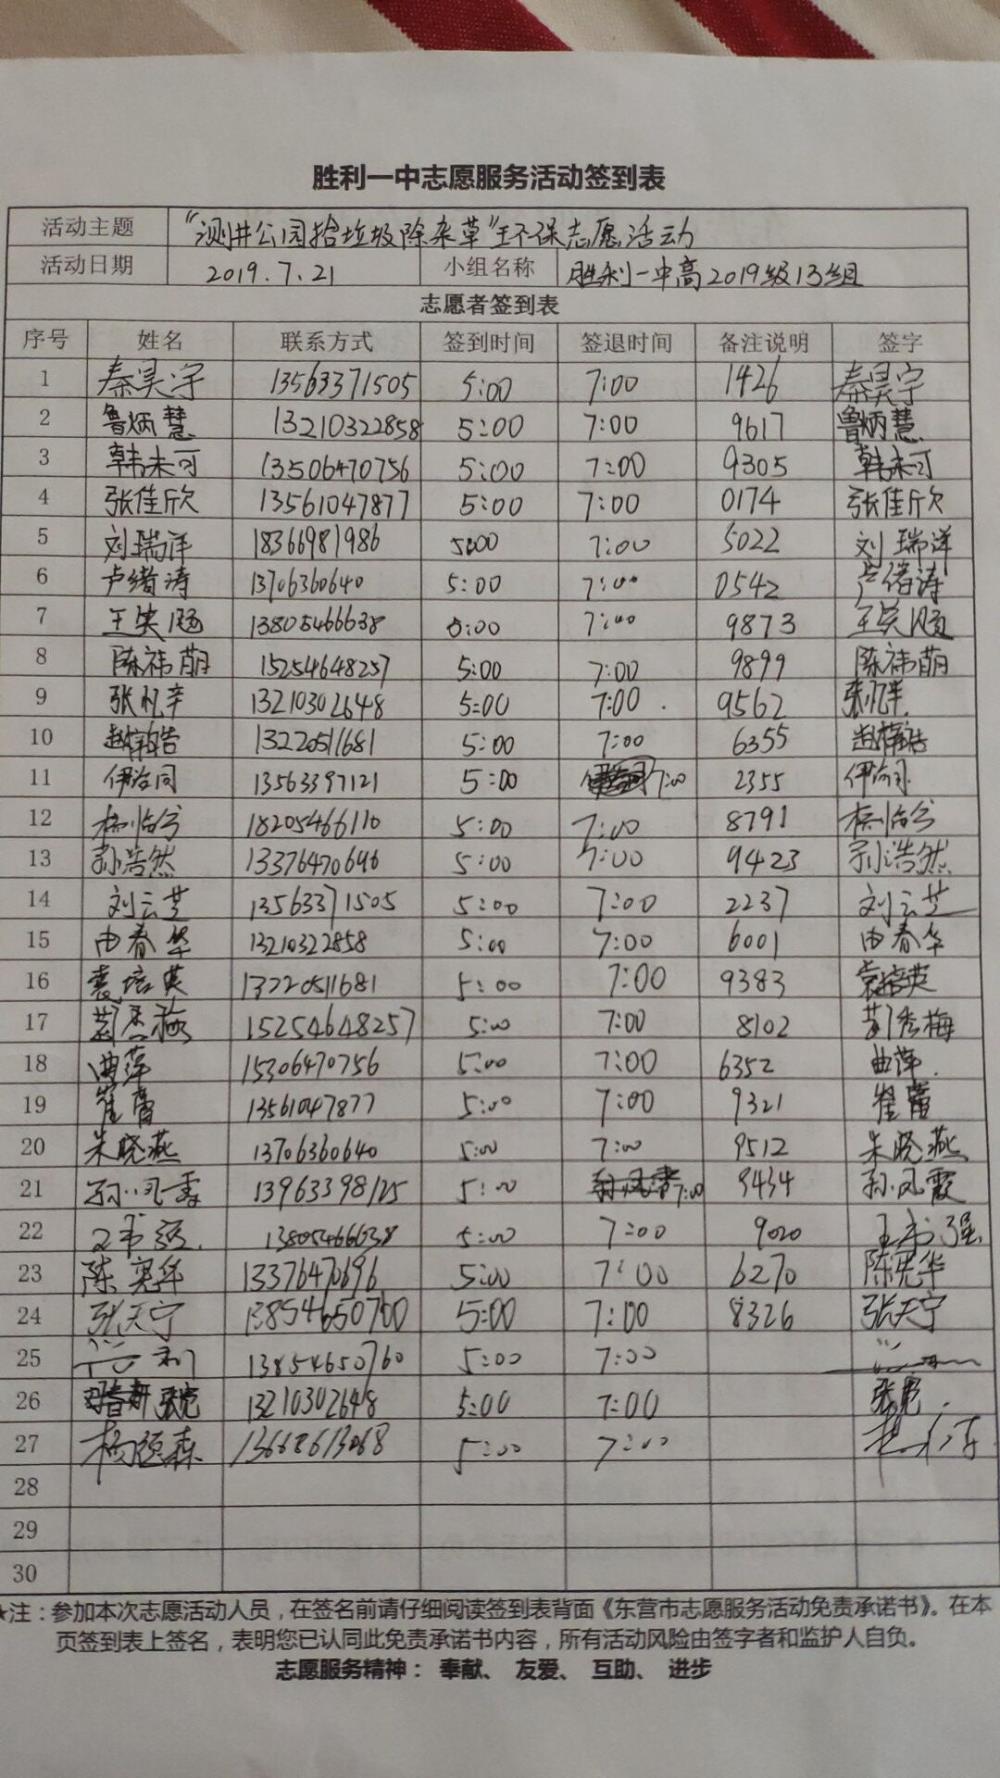 胜利一中志愿服务活动签到表
活动主题 "测井公园拾垃圾除杂草"环保志愿活动
活动日期 2019.7.21 小组名称 胜利一中高2019级13组
志愿者签到表
序号 姓名 联系方式 签到时间 签退时间 备注说明 签字
1 秦昊宇 13563371505 5:00 7:00 1426 秦昊宇
2 鲁炳慧 13210322858 5:00 7:00 9617 鲁炳慧
3 韩未可 13506470756 5:00 7:00 9305 韩未可
4 张佳欣 13561047877 5:00 7:00 0174 张佳欣
5 刘瑞洋 18366981986 5:00 7:00 5022 刘瑞洋
6 卢绪涛 13706360640 5:00 7:00 0542 卢绪涛
7 王笑 13805466638 5:00 7:00 9873 王笑
8 陈祎萌 15254648257 5:00 7:00 9899 陈祎萌
9 张忆辛 13210302648 5:00 7:00 9562 张忆辛
10 赵梓皓 13220511681 5:00 7:00 6355 赵梓皓
11 伊治同 13563397121 5:00 7:00 2355 伊治同
12 18205466110 5:00 7:00 8791
13 孙浩然 13376470696 5:00 7:00 9423 孙浩然
14 刘云芝 13563371505 5:00 7:00 2237 刘云芝
15 由春华 13210322858 5:00 7:00 6001 由春华
16 袁培英 13220511681 5:00 7:00 9383 袁培英
17 荆秀梅 15254648257 5:00 7:00 8102 荆秀梅
18 曲萍 15306470756 5:00 7:00 6352 曲萍
19 崔蕾 13561047877 5:00 7:00 9321 崔蕾
20 朱晓燕 13706360640 5:00 7:00 9512 朱晓燕
21 孙凤霞 13963398125 5:00 7:00 9434 孙凤霞
22 王书强 13805466638 5:00 7:00 9020 王书强
23 陈宪华 13376470696 5:00 7:00 6270 陈宪华
24 张天宁 13854650760 5:00 7:00 8326 张天宁
25 13854650760 5:00 7:00
26 13210302648 5:00 7:00
27 13668613068 5:00 7:00
28
29
30
★注：参加本次志愿活动人员，在签名前请仔细阅读签到表背面《东营市志愿服务活动免责承诺书》。在本
页签到表上签名，表明您已认同此免责承诺书内容，所有活动风险由签字者和监护人自负。
志愿服务精神： 奉献、 友爱、 互助、 进步